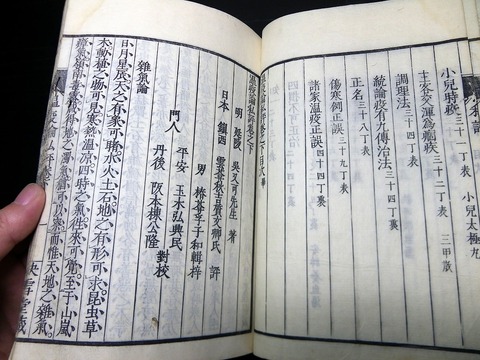 小兒時疫 三十一丁表 小兒太極丸
主客交渾爲痼疫 三十二丁表 三甲散
調理法 三十四丁表
統論疫有九傳治法 三十四丁裏
正名 三十八丁表
傷寒例正誤 三十九丁表
諸家溫疫正誤
溫疫論私評卷之下
明 延陵 吳又可先生 著
日本 鎮西 雲峯秋吉質文卿氏 評
男 榛苓孚子和輯梓
門人 平安 玉木弘興民
丹後 阪本棟公隆 對校
雜氣論
日月星辰天之有象可睹水火土石地之有形可求昆虫草
木動植之物可見寒熱溫涼四時之氣往來可覺至于山嵐
瘴氣嶺南毒霧咸得地之濁氣猶可以察而惟天地之雜氣
快雪堂藏